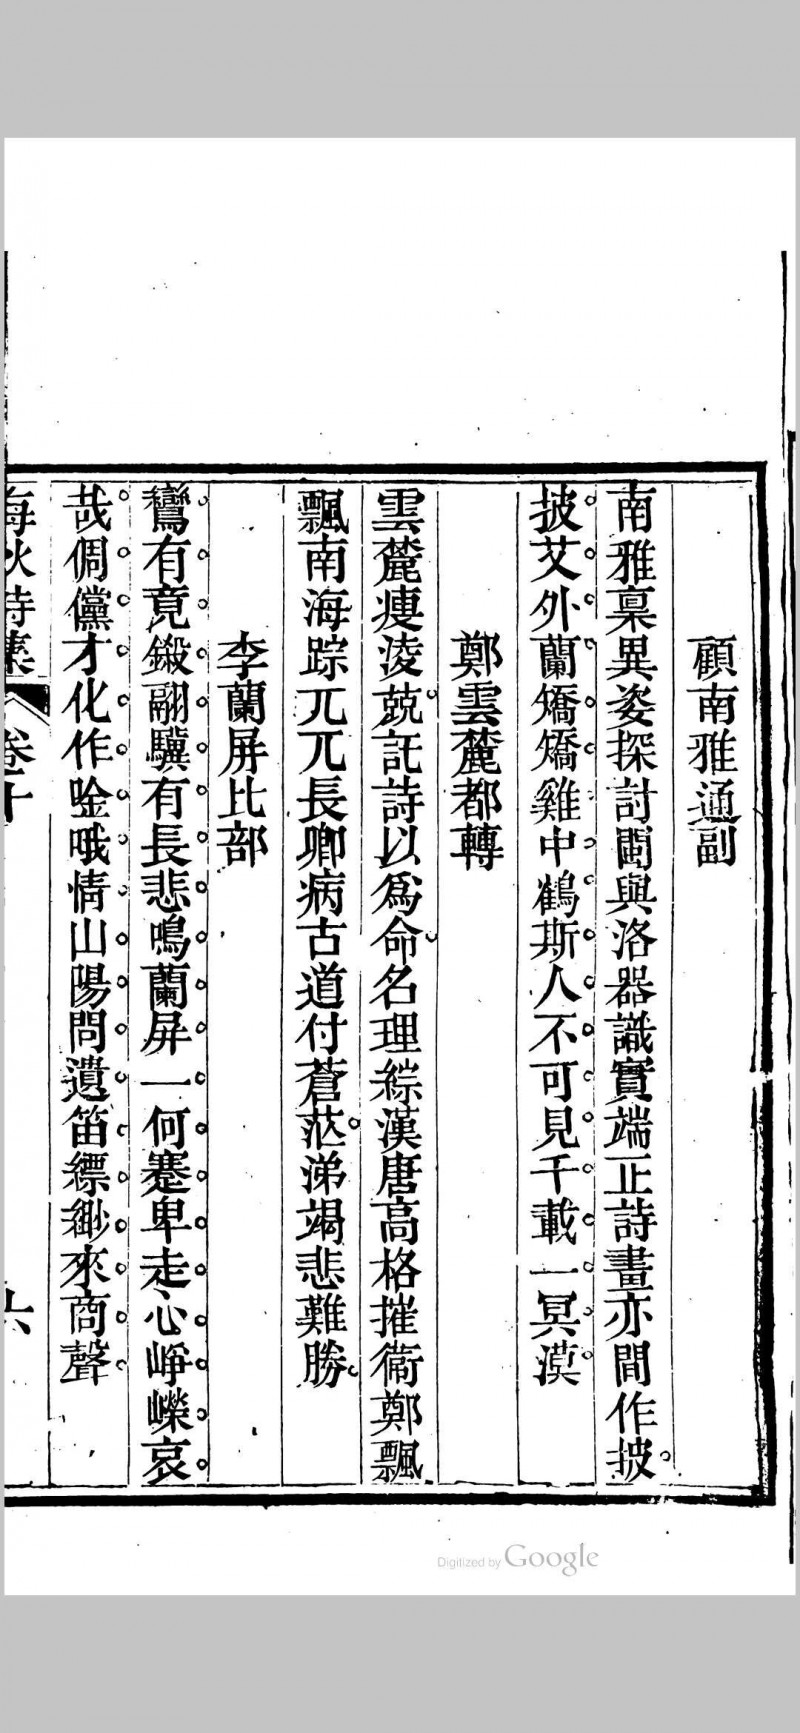 顧南雅通副
南雅稟異姿探討閩與洛器識實端正詩畫亦間作披
披艾外蘭矯矯雞中鶴斯人不可見千載一冥漠
鄭雲麓都轉
雲麓瘦淩兢託詩以為命名理綜漢唐高格摧衞鄭飄
飄南海踪兀兀長卿病古道付蒼茫涕竭悲難勝
李蘭屏比部
鸞有竟鎩翮驥有長悲鳴蘭屏一何蹇卑走心崢嶸哀
哉倜儻才化作唫哦情山陽問遺笛縹緲來商聲
海秋詩集 卷十 六
Digitized by Google